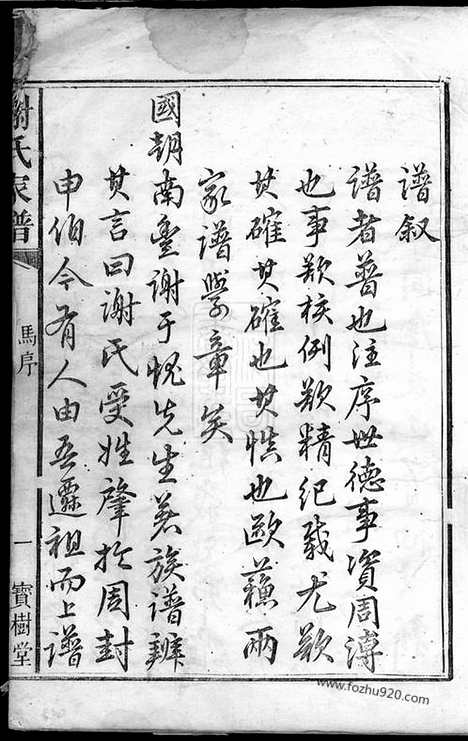 譜叙
譜者普也注序世德事資周溥
也事欵核例欵精紀載尤欵
其確其確也其慎也歐蘇兩
家譜學章矣
國朝南豐謝于愧先生著族譜辨
其言曰謝氏受姓肇於周封
申伯今有人由吾遷祖而上譜
謝氏家譜
馬序
一
寶樹堂
www.fozhu920.com